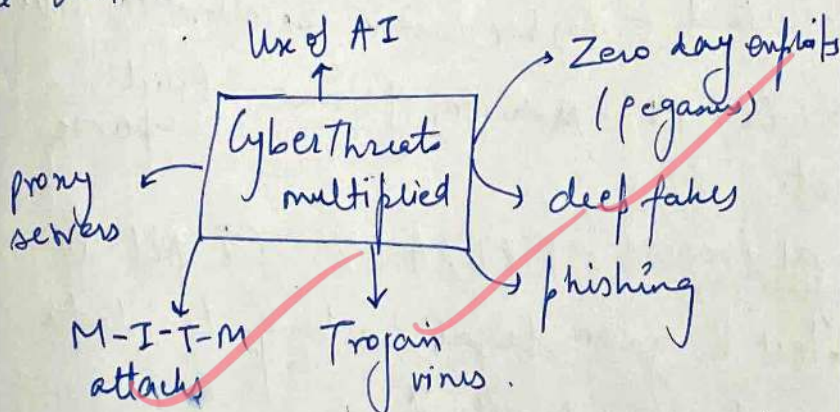 Use of AI
Zero day exploits
(pegasus)
Cyberthreats
multiplied
proxy
servers
deep fakes
phishing
M-I-T-M
attacks
Trojain
virus.